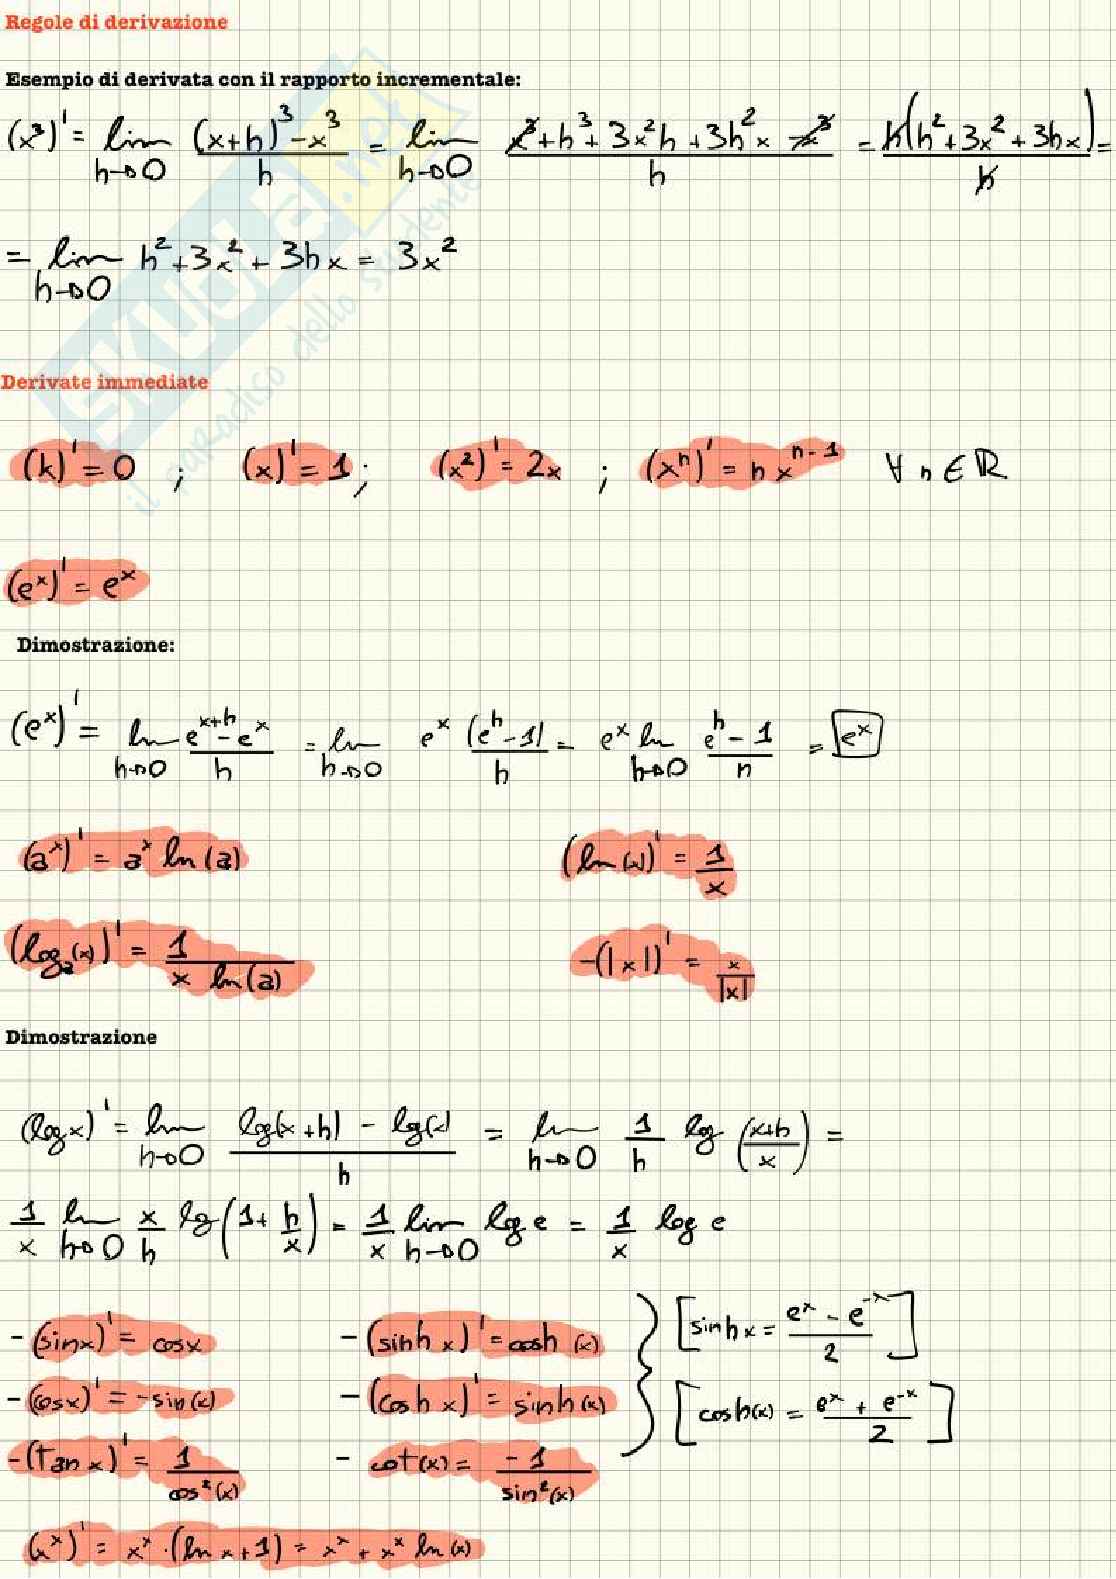 Regole di derivazione
Esempio di derivata con il rapporto incrementale:
(x³)' = lim h→0 ((x+h)³ - x³)/h = lim h→0 (x³ + h³ + 3x²h + 3h²x - x³)/h = h(h² + 3x² + 3hx)/h =
= lim h→0 h² + 3x² + 3hx = 3x²
Derivate immediate
(k)' = 0 ; (x)' = 1 ; (x²)' = 2x ; (xⁿ)' = n xⁿ⁻¹ ∀ n ∈ ℝ
(eˣ)' = eˣ
Dimostrazione:
(eˣ)' = lim h→0 (eˣ⁺ʰ - eˣ)/h = lim h→0 eˣ (eʰ - 1)/h = eˣ lim h→0 (eʰ - 1)/h = eˣ
(aˣ)' = aˣ ln(a) (ln(x))' = 1/x
(logₐ(x))' = 1/(x ln(a)) -(|x|)' = x/|x|
Dimostrazione
(log x)' = lim h→0 (log(x+h) - log(x))/h = lim h→0 1/h log((x+h)/x) =
1/x lim h→0 x/h lg(1 + h/x) = 1/x lim h→0 log e = 1/x log e
- (sinx)' = cosx - (sinh x)' = cosh(x) [sinhx = (eˣ - e⁻ˣ)/2]
- (cosx)' = -sin(x) - (cosh x)' = sinh(x) [cosh(x) = (eˣ + e⁻ˣ)/2]
- (Tan x)' = 1/cos²(x) - cot(x) = -1/sin²(x)
(xˣ)' = xˣ · (ln x + 1) = xˣ + xˣ ln(x)
SKUOLA.net
il paradiso dello studente